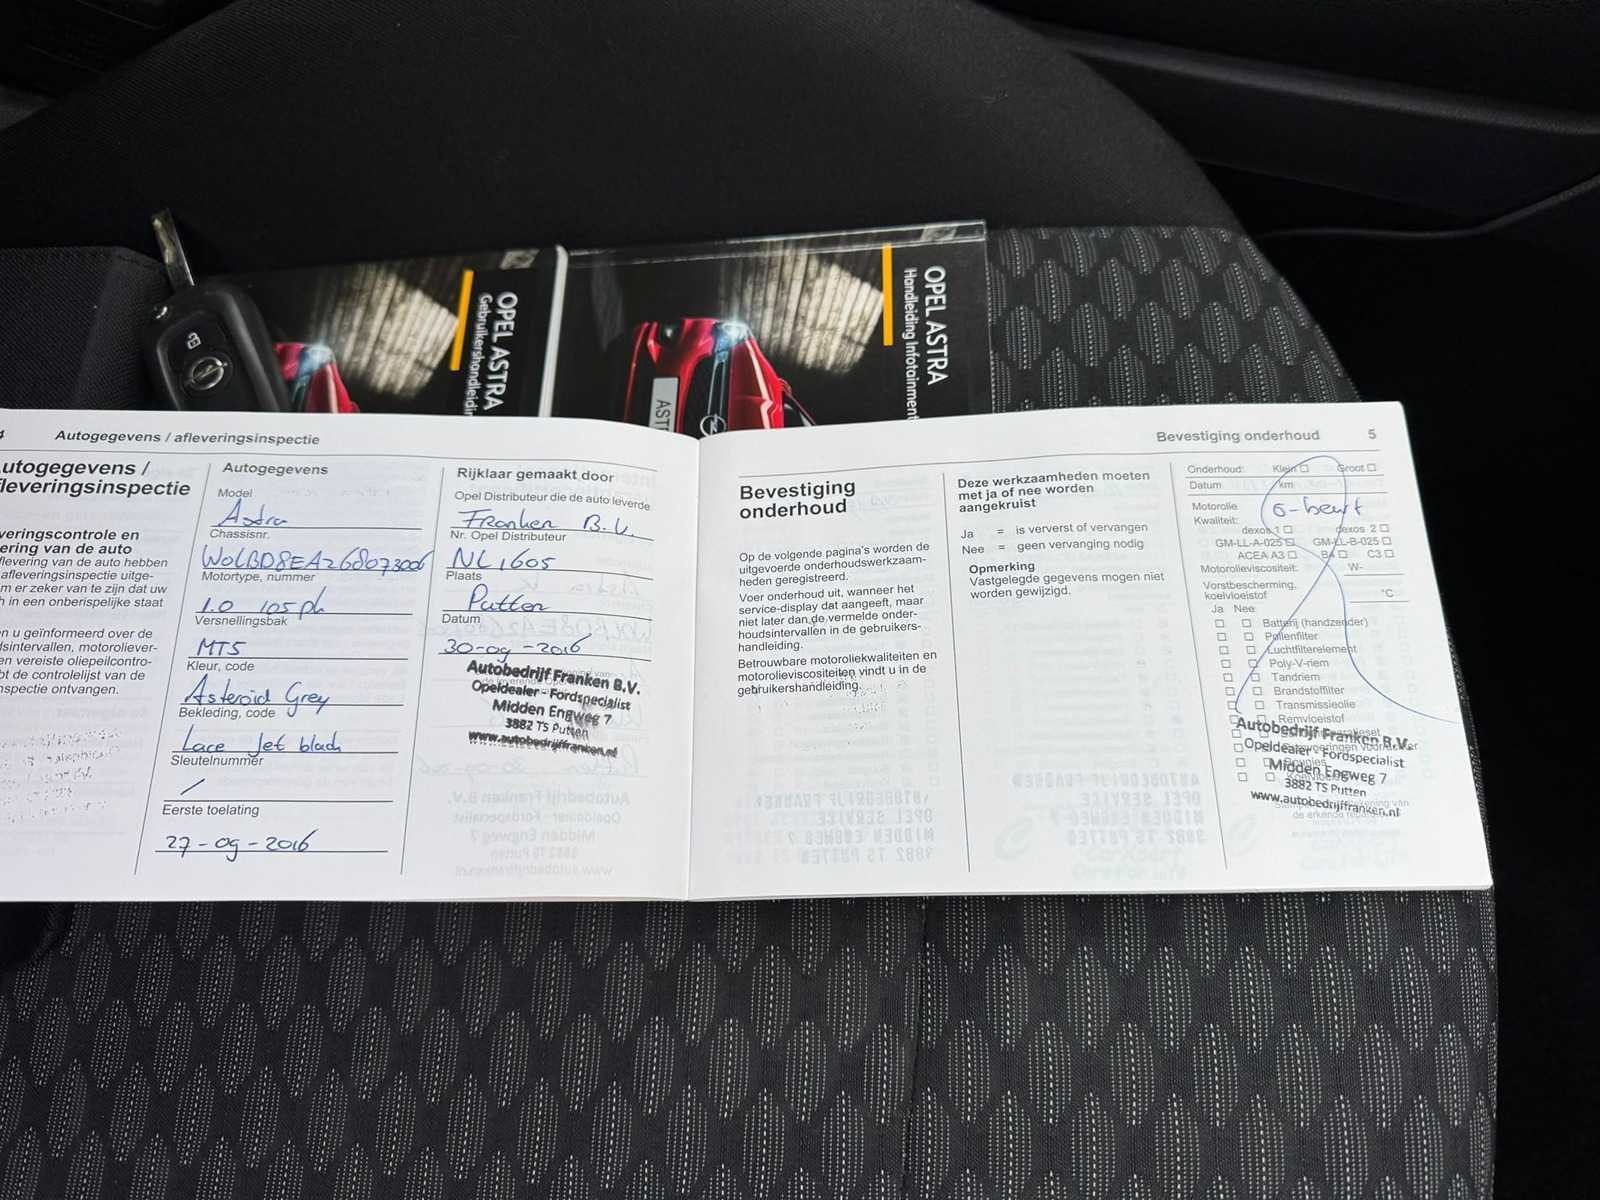 OPEL ASTRA
Gebruikershandleidin
OPEL ASTRA
Handleiding Infotainment
AST
4 Autogegevens / afleveringsinspectie
utogegevens /
fleveringsinspectie
veringscontrole en
ering van de auto
flevering van de auto hebben
afleveringsinspectie uitge-
m er zeker van te zijn dat uw
h in een onberispelijke staat
n u geïnformeerd over de
dsintervallen, motoroliever-
en vereiste oliepeilcontro-
bt de controlelijst van de
nspectie ontvangen.
Autogegevens
Model
Astra
Chassisnr.
W0LBD8EA268073006
Motortype, nummer
1.0 105 pk
Versnellingsbak
MT5
Kleur, code
Asteroid Grey
Bekleding, code
Lace Jet black
Sleutelnummer
/
Eerste toelating
27-09-2016
Rijklaar gemaakt door
Opel Distributeur die de auto leverde
Franken B.V.
Nr. Opel Distributeur
NL 1605
Plaats
Putten
Datum
30-09-2016
Autobedrijf Franken B.V.
Opeldealer - Fordspecialist
Midden Engweg 7
3882 TS Putten
www.autobedrijffranken.nl
Bevestiging onderhoud 5
Bevestiging
onderhoud
Op de volgende pagina's worden de
uitgevoerde onderhoudswerkzaam-
heden geregistreerd.
Voer onderhoud uit, wanneer het
service-display dat aangeeft, maar
niet later dan de vermelde onder-
houdsintervallen in de gebruikers-
handleiding.
Betrouwbare motoroliekwaliteiten en
motorolieviscositeiten vindt u in de
gebruikershandleiding.
Deze werkzaamheden moeten
met ja of nee worden
aangekruist
Ja = is ververst of vervangen
Nee = geen vervanging nodig
Opmerking
Vastgelegde gegevens mogen niet
worden gewijzigd.
Onderhoud: Klein Groot
Datum km
Motorolie 0-beurt
Kwaliteit:
dexos 1 dexos 2
GM-LL-A-025 GM-LL-B-025
ACEA A3 B4 C3
Motorolieviscositeit: W-
Vorstbescherming,
koelvloeistof °C
Ja Nee
Batterij (handzender)
Pollenfilter
Luchtfilterelement
Poly-V-riem
Tandriem
Brandstoffilter
Transmissieolie
Remvloeistof
Autobedrijf Franken B.V.
Opeldealer - Fordspecialist
Midden Engweg 7
3882 TS Putten
www.autobedrijffranken.nl
de erkende